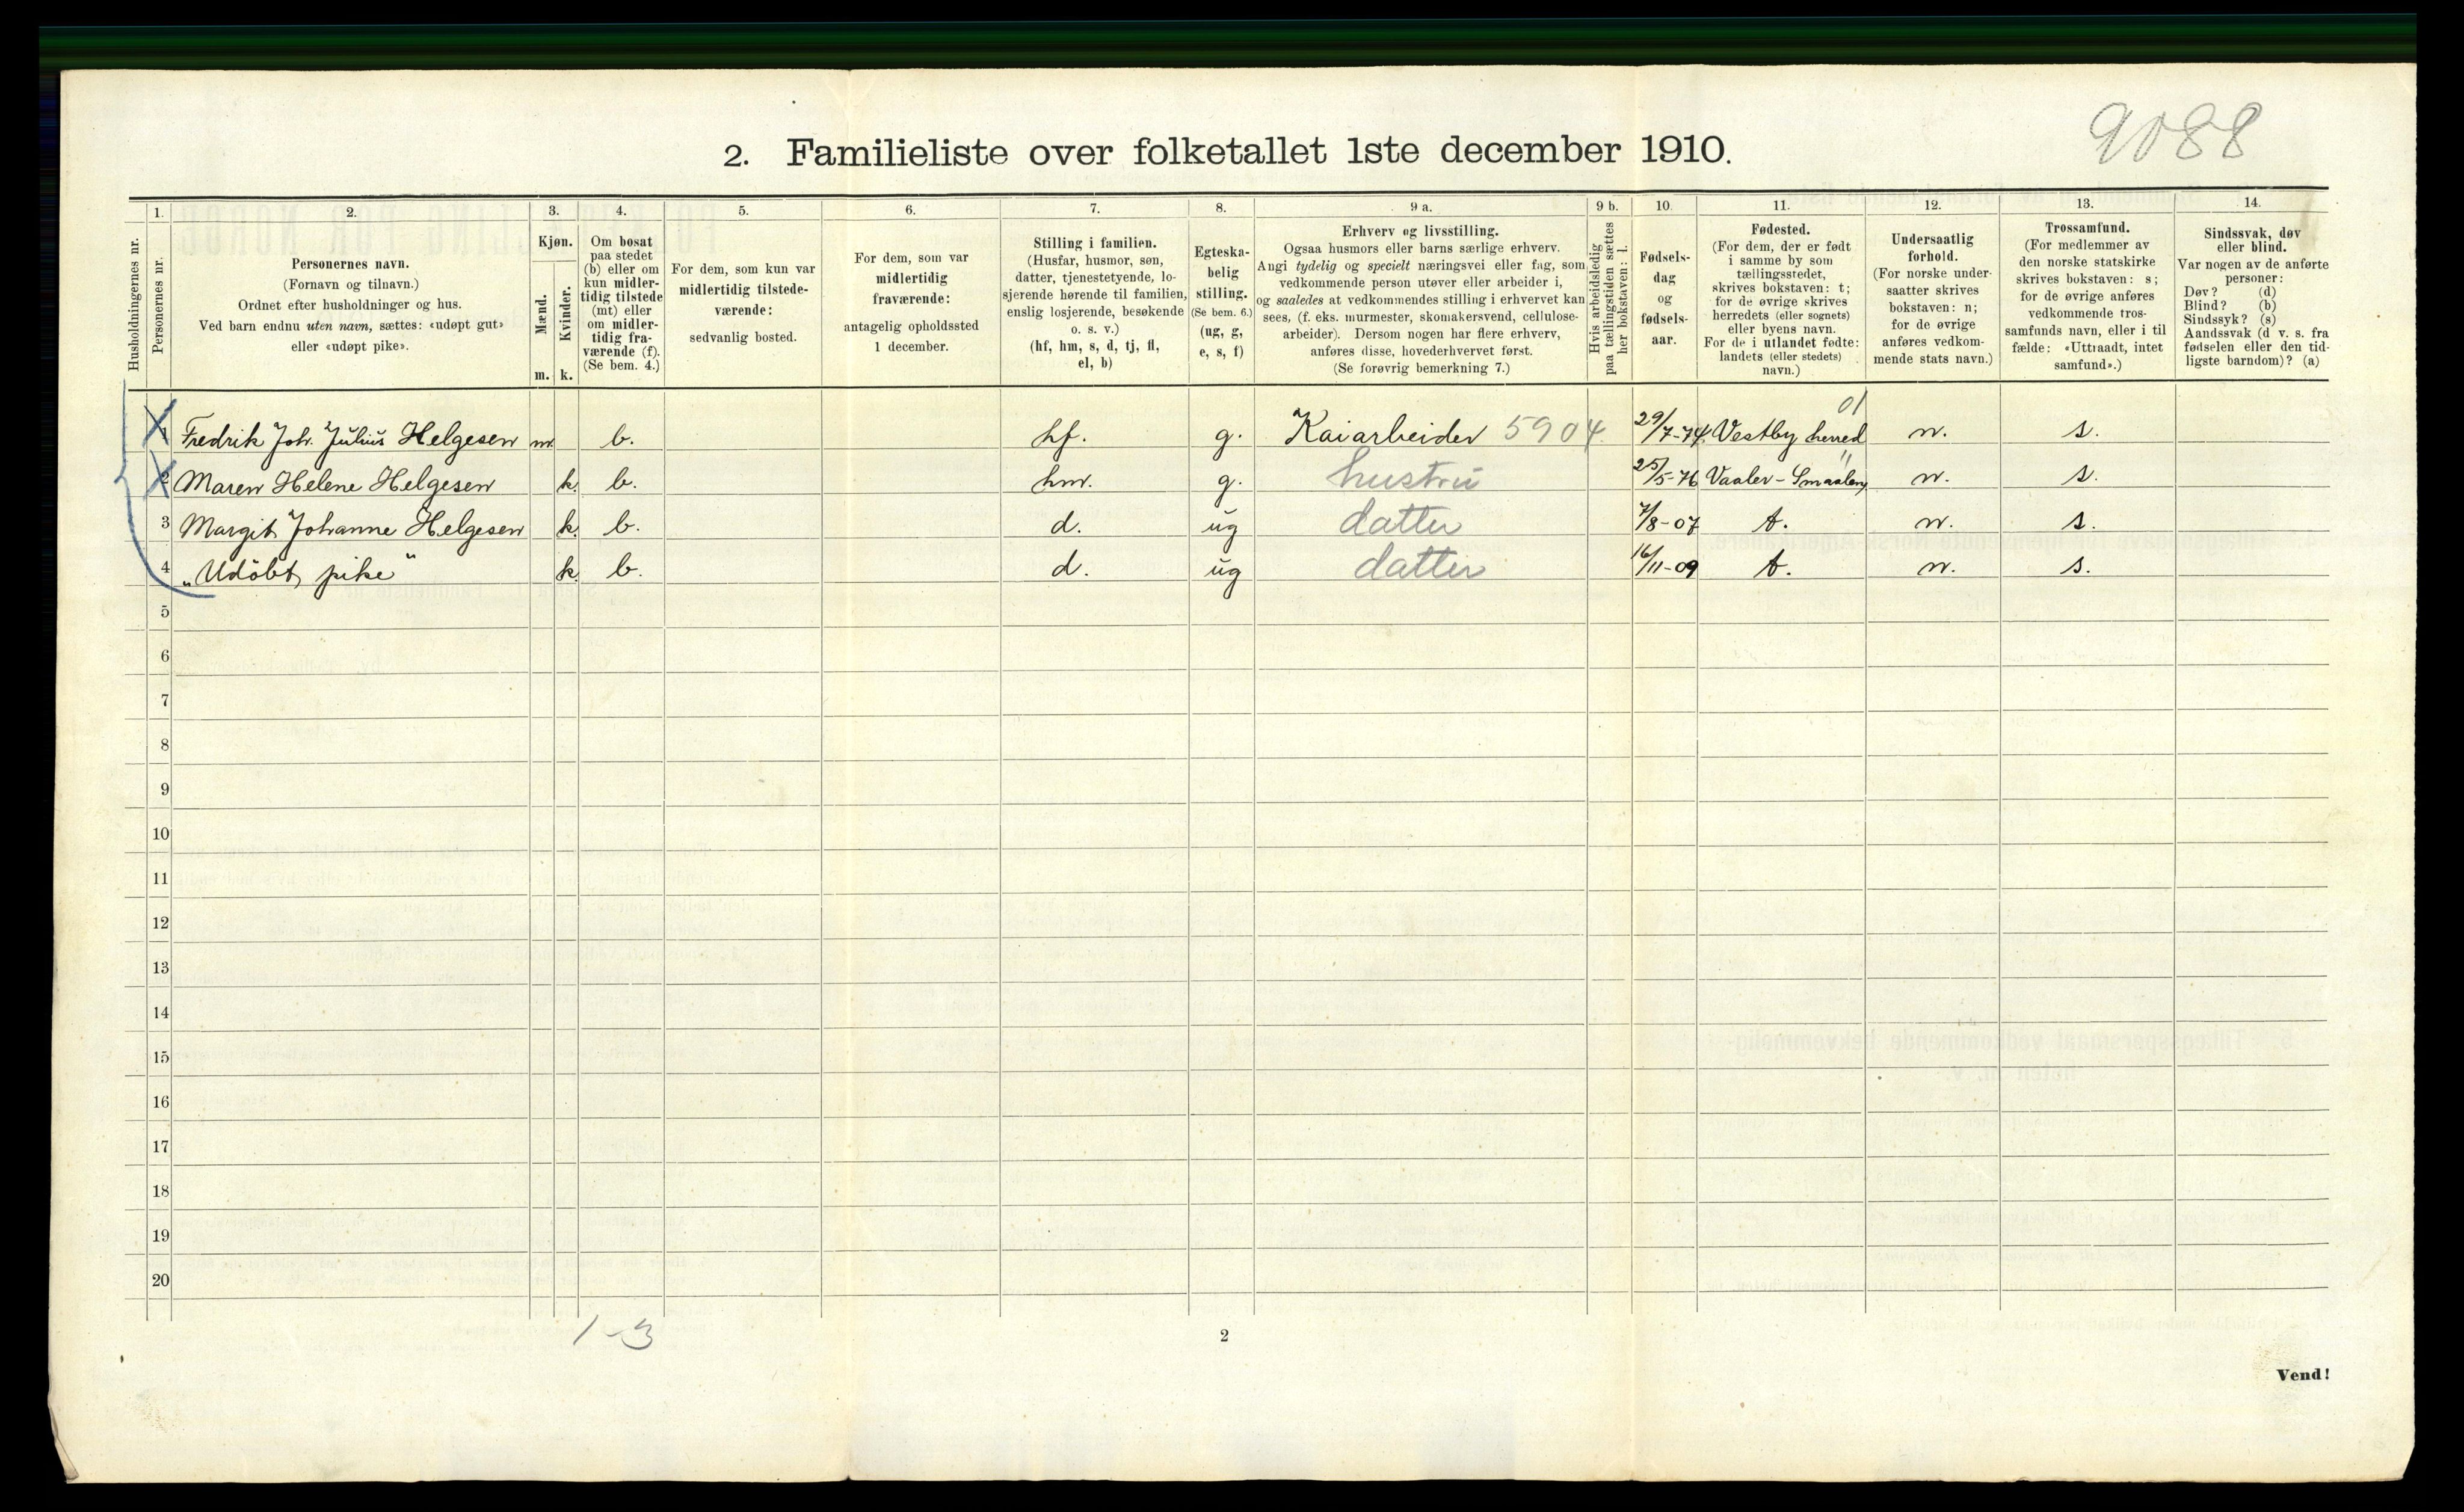 9088
2. Familieliste over folketallet 1ste december 1910.
Husholdningernes nr.
1.
Personernes nr.
2.
Personernes navn.
(Fornavn og tilnavn.)
Ordnet efter husholdninger og hus.
Ved barn endnu uten navn, sættes: «udøpt gut»
eller «udøpt pike».
3.
Kjøn.
Mænd.
Kvinder.
m. k.
4.
Om bosat
paa stedet
(b) eller om
kun midler-
tidig tilstede
(mt) eller
om midler-
tidig fra-
værende (f).
(Se bem. 4.)
5.
For dem, som kun var
midlertidig tilstede-
værende:
sedvanlig bosted.
6.
For dem, som var
midlertidig
fraværende:
antagelig opholdssted
1 december.
7.
Stilling i familien.
(Husfar, husmor, søn,
datter, tjenestetyende, lo-
sjerende hørende til familien,
enslig losjerende, besøkende
o. s. v.)
(hf, hm, s, d, tj, fl,
el, b)
8.
Egteska-
belig
stilling.
(Se bem. 6.)
(ug, g,
e, s, f)
9 a.
Erhverv og livsstilling.
Ogsaa husmors eller barns særlige erhverv.
Angi tydelig og specielt næringsvei eller fag, som
vedkommende person utøver eller arbeider i,
og saaledes at vedkommendes stilling i erhvervet kan
sees, (f. eks. murmester, skomakersvend, cellulose-
arbeider). Dersom nogen har flere erhverv,
anføres disse, hovederhvervet først.
(Se forøvrig bemerkning 7.)
9 b.
Hvis arbeidsledig
paa tællingstiden sættes
her bokstaven: l.
10.
Fødsels-
dag
og
fødsels-
aar.
11.
Fødested.
(For dem, der er født
i samme by som
tællingsstedet,
skrives bokstaven: t;
for de øvrige skrives
herredets (eller sognets)
eller byens navn.
For de i utlandet fødte:
landets (eller stedets)
navn.)
12.
Undersaatlig
forhold.
(For norske under-
saatter skrives
bokstaven: n;
for de øvrige
anføres vedkom-
mende stats navn.)
13.
Trossamfund.
(For medlemmer av
den norske statskirke
skrives bokstaven: s;
for de øvrige anføres
vedkommende tros-
samfunds navn, eller i til
fælde: «Uttraadt, intet
samfund».)
14.
Sindssvak, døv
eller blind.
Var nogen av de anførte
personer:
Døv? (d)
Blind? (b)
Sindssyk? (s)
Aandssvak (d v. s. fra
fødselen eller den tid-
ligste barndom)? (a)
01
1 Fredrik Joh. Julius Helgesen m. b. hf. g. Kaiarbeider 5904 29/7-74 Vestby herred n. s.
"
2 Maren Helene Helgesen k. b. hm. g. hustru 25/5-76 Vaaler - Smaalen n. s.
3 Margit Johanne Helgesen k. b. d. ug datter 7/8-07 t. n. s.
4 „Udöbt pike" k. b. d. ug datter 16/11-09 t. n. s.
5
6
7
8
9
10
11
12
13
14
15
16
17
18
19
20
1-3
2
Vend!